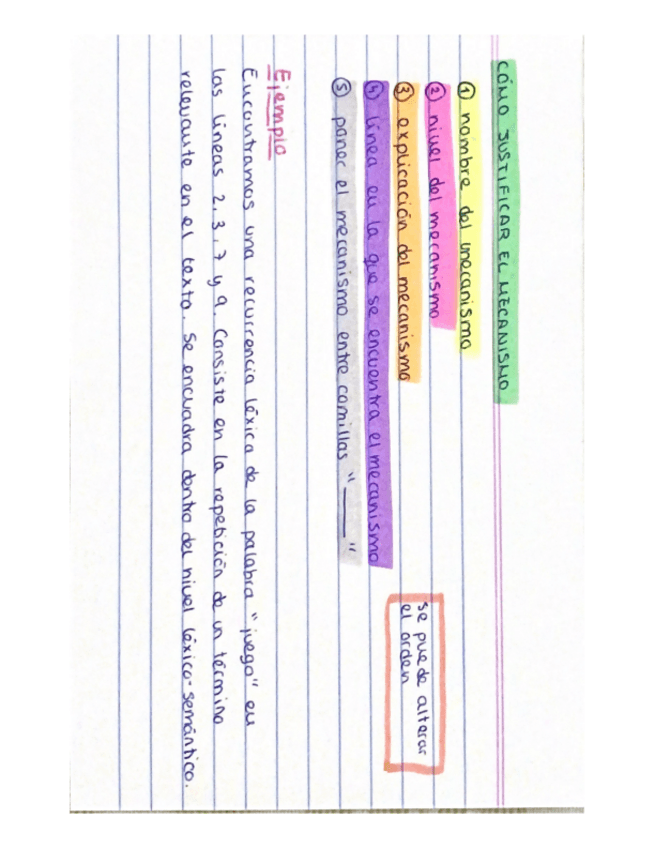 CÓMO JUSTIFICAR EL MECANISMO
① nombre del mecanismo
② nivel del mecanismo
③ explicación del mecanismo
④ línea en la que se encuentra el mecanismo
⑤ poner el mecanismo entre comillas "____"
se puede alterar
el orden
Ejemplo
Encontramos una recurrencia léxica de la palabra "juego" en
las líneas 2, 3, 7 y 9. Consiste en la repetición de un término
relevante en el texto. Se encuadra dentro del nivel léxico-semántico.